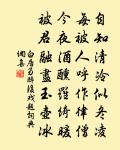 自知清冷似冬凌
每被人呼作律僧
今夜酒醺羅綺暖
被君融盡玉壺冰
白居易醉後戲題詞典
網集